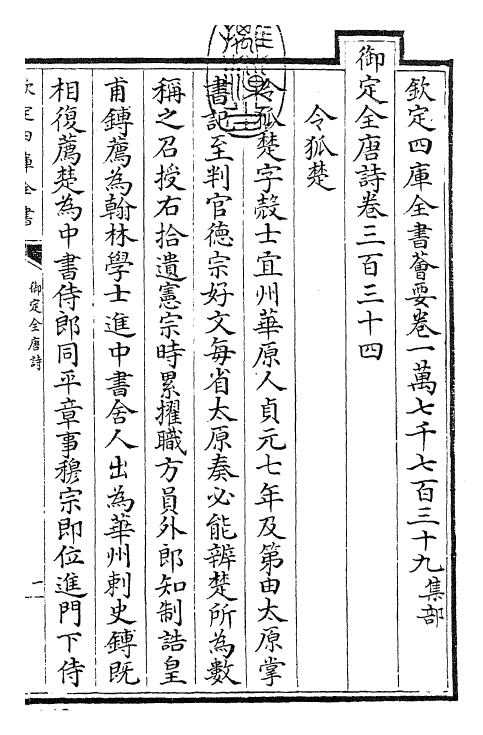 欽定四庫全書薈要卷一萬七千七百三十九集部
御定全唐詩卷三百三十四
令狐楚
令狐楚字殼士宜州華原人貞元七年及第由太原掌
書記至判官德宗好文每省太原奏必能辨楚所為數
稱之召授右拾遺憲宗時累擢職方員外郎知制誥皇
甫鎛薦為翰林學士進中書舍人出為華州刺史鎛既
相復薦楚為中書侍郎同平章事穆宗即位進門下侍
欽定四庫全書
御定全唐詩
一